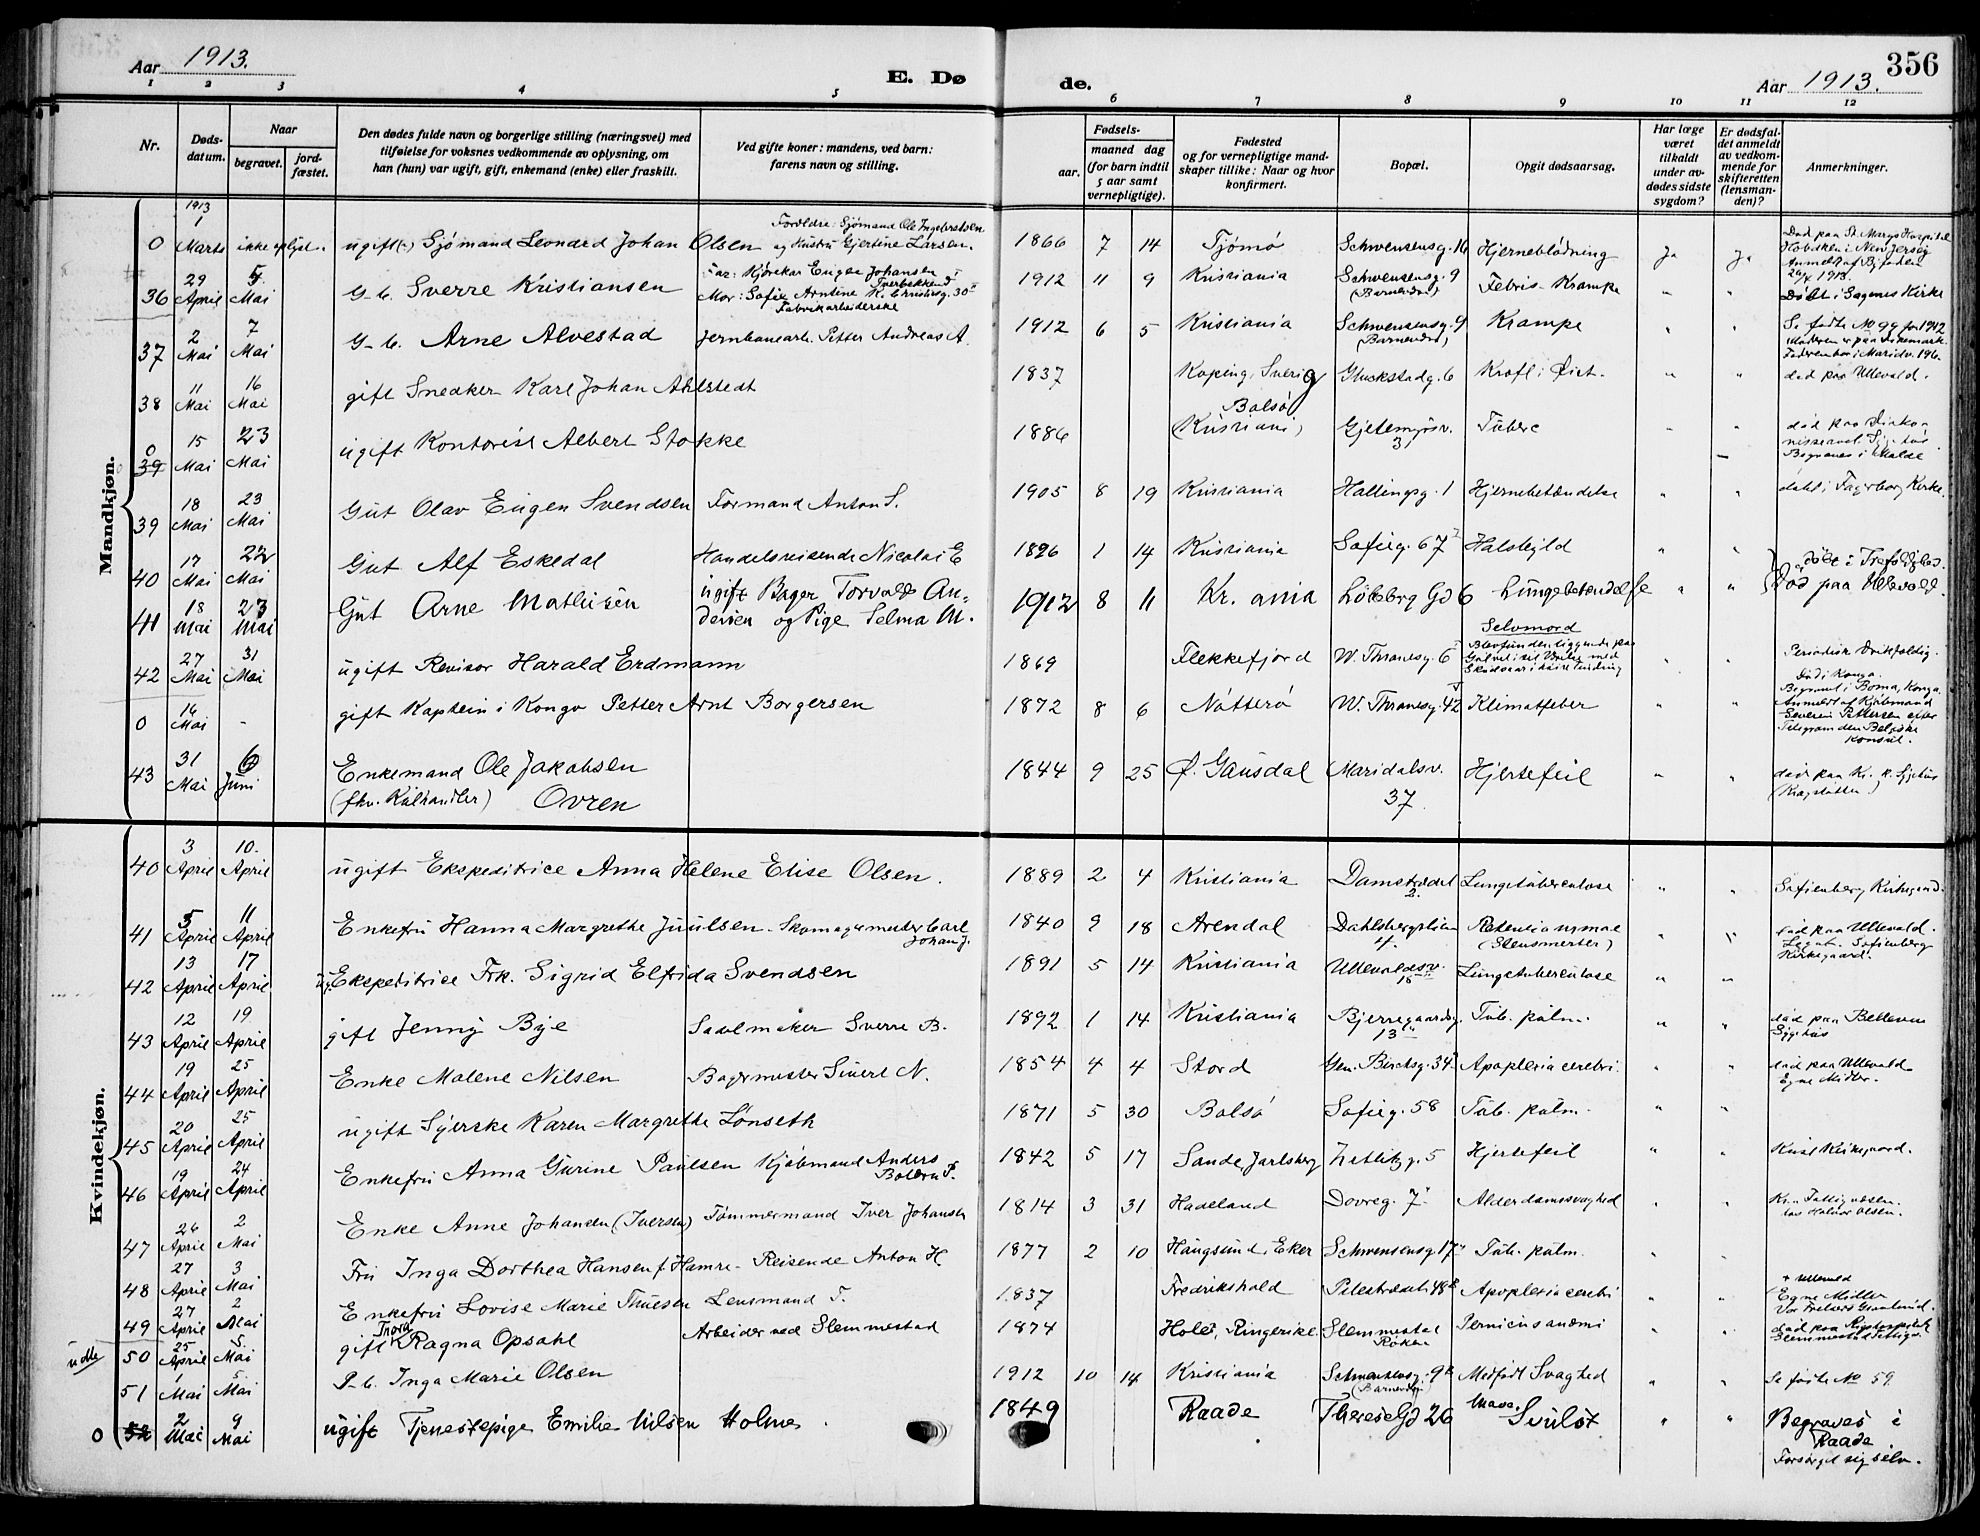 356
Aar 1913.
E. Dø
de.
Aar 1913.
1 2 3 4 5 6 7 8 9 10 11 12
Nr.
Døds-
datum.
Naar
begravet.
jord-
fæstet.
Den dødes fulde navn og borgerlige stilling (næringsvei) med
tilføielse for voksnes vedkommende av oplysning, om
han (hun) var ugift, gift, enkemand (enke) eller fraskilt.
Ved gifte koner: mandens, ved barn:
farens navn og stilling.
Fødsels-
aar.
maaned dag
(for barn indtil
5 aar samt
vernepligtige).
Fødested
og for vernepligtige mand-
skaper tillike: Naar og hvor
konfirmert.
Bopæl.
Opgit dødsaarsag.
Har læge
været
tilkaldt
under av-
dødes sidste
sygdom?
Er dødsfal-
det anmeldt
av vedkom-
mende for
skifteretten
(lensman-
den)?
Anmerkninger.
Mandkjøn.
1913
0 1 Marts ikke oplyst. ugift (-) Sjømand Leonard Johan Olsen Forældre: Sjømand Ole Ingebretsen og Hustru Gjertine Larsen. 1866 7 14 Tjømø Schwensensg. 16 Hjerneblödning Ja Ja Död paa St. Marys Hospital Hoboken i New Jersey
36 29 April 5 Mai G-b. Sverre Kristiansen Far: Kjørekar Eugen Johansen Mor: Sofie Arntine K. Fabrikarbeiderske 1912 11 9 Kristiania Schwensensg. 9 Febris - Krampe " " Döbt i Sagenes Kirke
37 2 Mai 7 Mai G-b. Arne Alvestad Jernbanearb. Petter Andreas A. 1912 6 5 Kristiania Schwensensg. 9 Krampe " " Se födte No 99 for 1912
38 11 Mai 16 Mai gift Snedker Karl Johan Ahlstedt 1837 Köping, Sverig Gluckstadg. 6 Kræft i Öiet. " " död paa Ullevold.
0 39 15 Mai 23 Mai ugift Kontorist Albert Stokke 1886 Bolsö (Kristiani) Gjetemyrsv. 3 Tuberc " " död paa Diakonisseanst. Sygehus Begraves i Molde
39 18 Mai 23 Mai Gut Olav Eugen Svendsen Formand Anton S. 1905 8 19 Kristiania Hallingsg. 1 Hjernebetændelse " " döbt i Fagerborg Kirke.
40 17 Mai 22 Mai Gut Alf Eskedal Handelsreisende Nicolai E 1896 1 14 Kristiania Sofieg. 67 Halsbyld " " döbt i Trefoldighed.
41 18 Mai 23 Mai Gut Arne Mathisen ugift Bager Torvald Andersen og Pige Selma M. 1912 8 11 Kr. ania Löbsberg Gd 6 Lungebetændelse " " Död paa Ullevold.
42 27 Mai 31 Mai ugift Revisor Harald Erdmann 1869 Flekkefjord W. Thranesg. 6 Selvmord Blev funden liggende paa Gulvet i sit Værelse med Skudsaar i höire tinding " " Periodisk Drikfældig.
0 14 Mai - gift Kaptein i Kongo Petter Arnt Borgersen 1872 8 6 Nötterö W. Thranesg. 42 Klimatfeber " " Död i Kongo. Begravet i Boma, Kongo. Anmeldt af Kjöbmand Severin Pettersen efter Telegram den Belgiske Konsul.
43 31 Mai 6 Juni Enkemand Ole Jakobsen Ovren (fhv. Kulhandler) 1844 9 25 Ø. Gausdal Maridalsv. 37. Hjertefeil " " död paa Kr. K. Sygehus (Krogstötten)
Kvindekjøn.
40 3 April 10. April ugift Ekspeditrice Anna Helene Elise Olsen. 1889 2 4 Kristiania Damstrædet 2. Lungetuberculose " " Sofienberg Kirkegaard.
41 5 April 11 April Enkefru Hanna Margrethe Juulsen - Skomagermester Carl Johan J. 1840 9 18 Arendal Dahlsbergstien 4. " " död paa Ullevold. Legat. Sofienberg Kirkegaard.
42 13 April 17 April ug. Ekspeditrice Frk. Sigrid Elfrida Svendsen 1891 5 14 Kristiania Ullevoldsv. 15 Lungetuberculose " "
43 12 April 19 April gift Jenny Bye Sadelmaker Sverre B. 1892 1 14 Kristiania Bjerregaardsg. 13 Tub. pulm. " " död paa Bellevue Sygehus
44 19 April 25 April Enke Malene Nilsen Bagermester Sivert N. 1854 4 4 Stord Gen. Birchsg. 34 Apoplexia cerebri. " " död paa Ullevold Egne Midler.
45 20 April 25 April ugift Syerske Karen Margrethe Lønseth 1871 5 30 Bolsö Sofieg. 58 Tub. pulm. " "
46 19 April 24 April Enkefru Anna Gurine Paulsen Kjöbmand Anders P. 1842 5 17 Sande, Jarlsberg Zetlitzg. 5 Hjertefeil " " Krist Kirkegaard.
47 26 April 2 Mai Enke Anne Johansen (Iversen) Tömmermand Iver Johansen 1814 3 31 Hadeland Dovreg. 7 Alderdomssvaghed " " Kr. Fattigvæsen. Halvor Olsen.
48 27 April 3 Mai Fru Inga Dorthea Hansen f. Hamre - Reisende Anton H. 1877 2 10 Haugsund, Eker Schwensensg. 17 Tub. pulm. " "
49 27 April 2 Mai Enkefru Lovise Marie Thuesen Lensmand T. 1837 Fredrikshald Pilestrædet 48 Apoplexia cerebri " " + Ullevold Egne Midler Vor Frelsers Gravlund.
udbl. 50 25 April 5. Mai gift Thora Ragna Opsahl Arbeider ved Slemmestad 1874 Hole, Ringerike. Slemmestad Röken Perniciøs anæmi " " död paa Rigshospitalet
51 1 Mai 5 Mai P-b. Inga Marie Olsen 1912 10 14 Kristiania Schwensensg. 9 Medfödt Svaghed " " Se födte No 59.
0 52 2 Mai 9 Mai ugift Tjenestepige Emilie Nilsen Holmes. 1849 Raade Therese Gd 26 Mave. Svulst " " Begraves i Raade Forsörget sig selv.